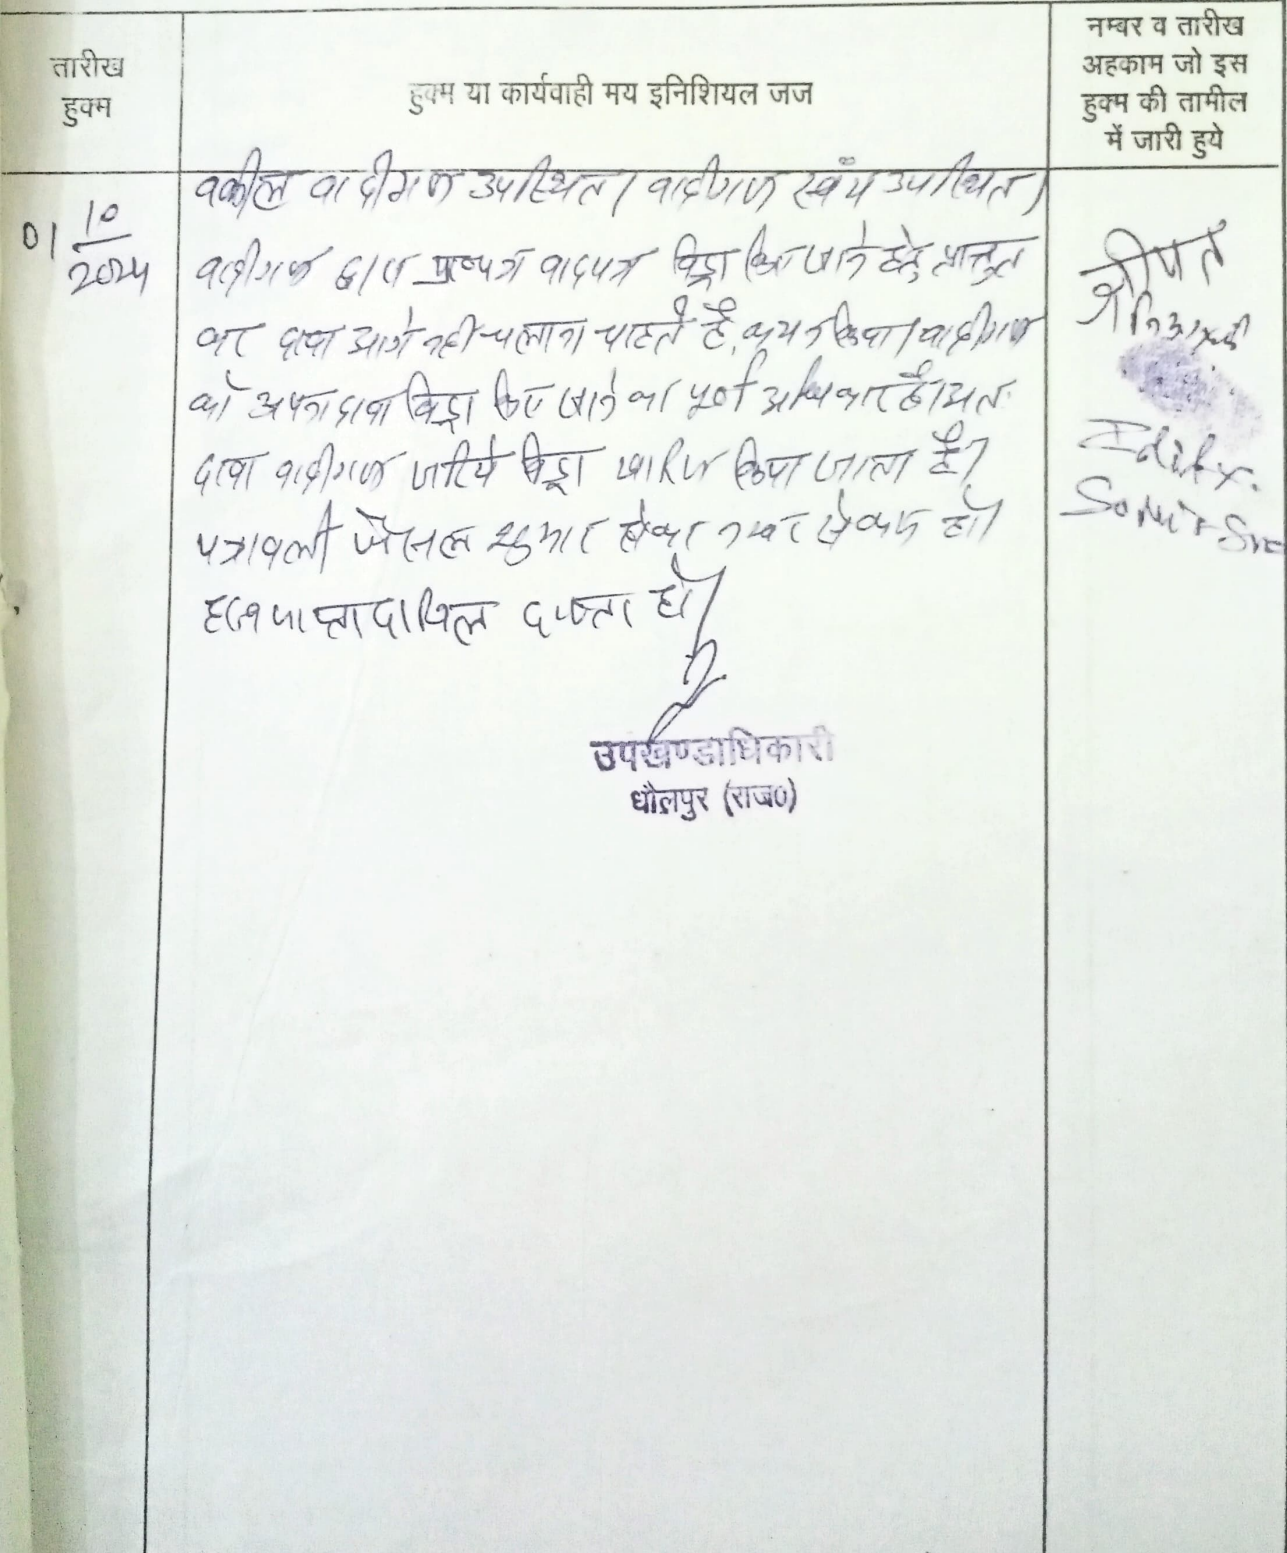 तारीख
हुक्म
हुक्म या कार्यवाही मय इनिशियल जज
नम्बर व तारीख
अहकाम जो इस
हुक्म की तामील
में जारी हुये
01 10
2024
वकील वादीगण उपस्थित। वादीगण स्वंय उपस्थित।
वादीगण द्वारा वादपत्र विड्रा किए जाने हेतु प्रस्तुत
कर दावा आगे नहीं चलाना चाहते हैं, कथन किया। वादीगण
को अपना दावा विड्रा किए जाने का पूर्ण अधिकार है। अतः
दावा वादीगण जरिये विड्रा खारिज किया जाता है।
पत्रावली फैसल शुमार होकर नम्बर से कम हो।
दाखिल दफ्तर हो।
उपखण्डाधिकारी
धौलपुर (राज०)
श्रीपत